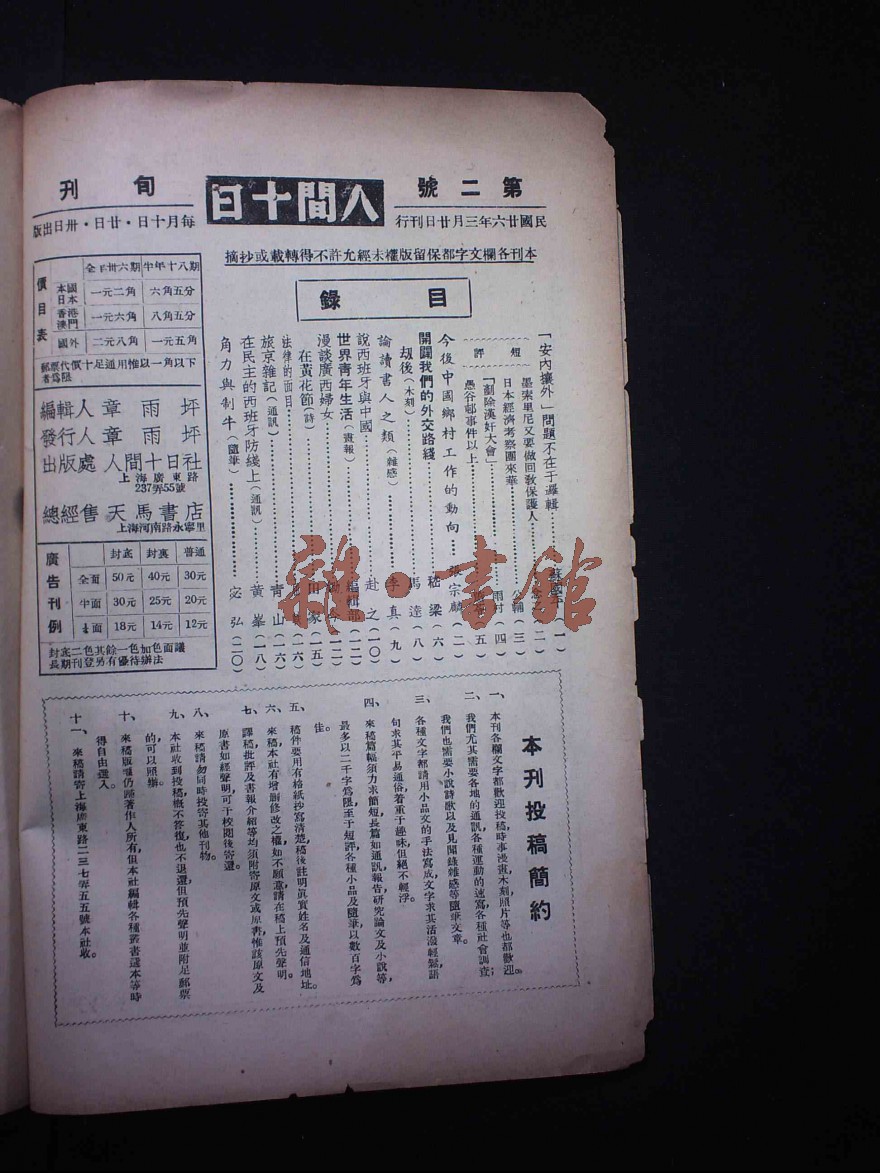 第二號
人間十日
旬刊
民國廿六年三月廿日刊行
每月十日・廿日・卅日出版
本刊各欄文字都保留版權未經允許不得轉載或抄摘
目錄
「安內攘外」問題不在于邏輯
短評
墨索里尼又要做回敎保護人
(二)
日本經濟考察團來華
(三)
「剷除漢奸大會」
雨村(四)
愚谷邨事件以上
(五)
今後中國鄉村工作的動向
張宗麟(二)
開闢我們的外交路綫
嵇梁(六)
刼後(木刻)
馬達(八)
論讀書人之類(雜感)
李真(九)
說西班牙與中國
赴之(一〇)
世界青年生活(畫報)
編輯部(一二)
漫談廣西婦女
(一二)
在黃花節(詩)
田家(一五)
法律的面目
(一六)
旅京雜記(通訊)
青山(一六)
在民主的西班牙防綫上(通訊)
黃峯(一八)
角力與制牛(隨筆)
宓弘(二〇)
價目表
全年卅六期
半年十八期
本國日本
一元二角
六角五分
香港澳門
一元六角
八角五分
國外
二元八角
一元五角
郵票代價十足通用惟以一角以下者爲限
編輯人章雨坪
發行人章雨坪
出版處人間十日社
上海廣東路
237弄55號
總經售天馬書店
上海河南路永寧里
廣告刊例
封底 封裏 普通
全面 50元 40元 30元
半面 30元 25元 20元
¼面 18元 14元 12元
封底二色其餘一色加色面議
長期刊登另有優待辦法
本刊投稿簡約
一、本刊各欄文字都歡迎投稿時事漫畫,木刻,照片等也都歡迎。
二、我們尤其需要各地的通訊,各種運動的速寫,各種社會調查;
我們也需要小說詩歌以及見聞錄雜感等隨筆文章。
三、各種文字都請用小品文的手法寫成,文字求其活潑輕鬆,語
句求其平易通俗,着重于趣味但絕不輕浮。
四、來稿篇幅須力求簡短,長篇如通訊報告研究論文及小說等,
最多以二千字爲限,至于短評,各種小品及隨筆以數百字爲
佳。
五、稿件要用有格紙抄寫清楚,稿後註明眞實姓名及通信地址。
六、來稿本社有增刪修改之權,如不願意,請在稿上預先聲明。
七、譯稿,批評及書報介紹等均須附寄原文或原書,惟該原文及
原書如經聲明,可于校閱後寄還。
八、來稿請勿同時投寄其他刊物。
九、本社收到投稿,槪不答復,也不退還,但預先聲明並附足郵票
的可以照辦。
十、來稿版權仍歸著作人所有,但本社編輯各種叢書選本等時
得自由選入。
十一、來稿請寄上海廣東路二三七弄五五號本社收。
雜・書館